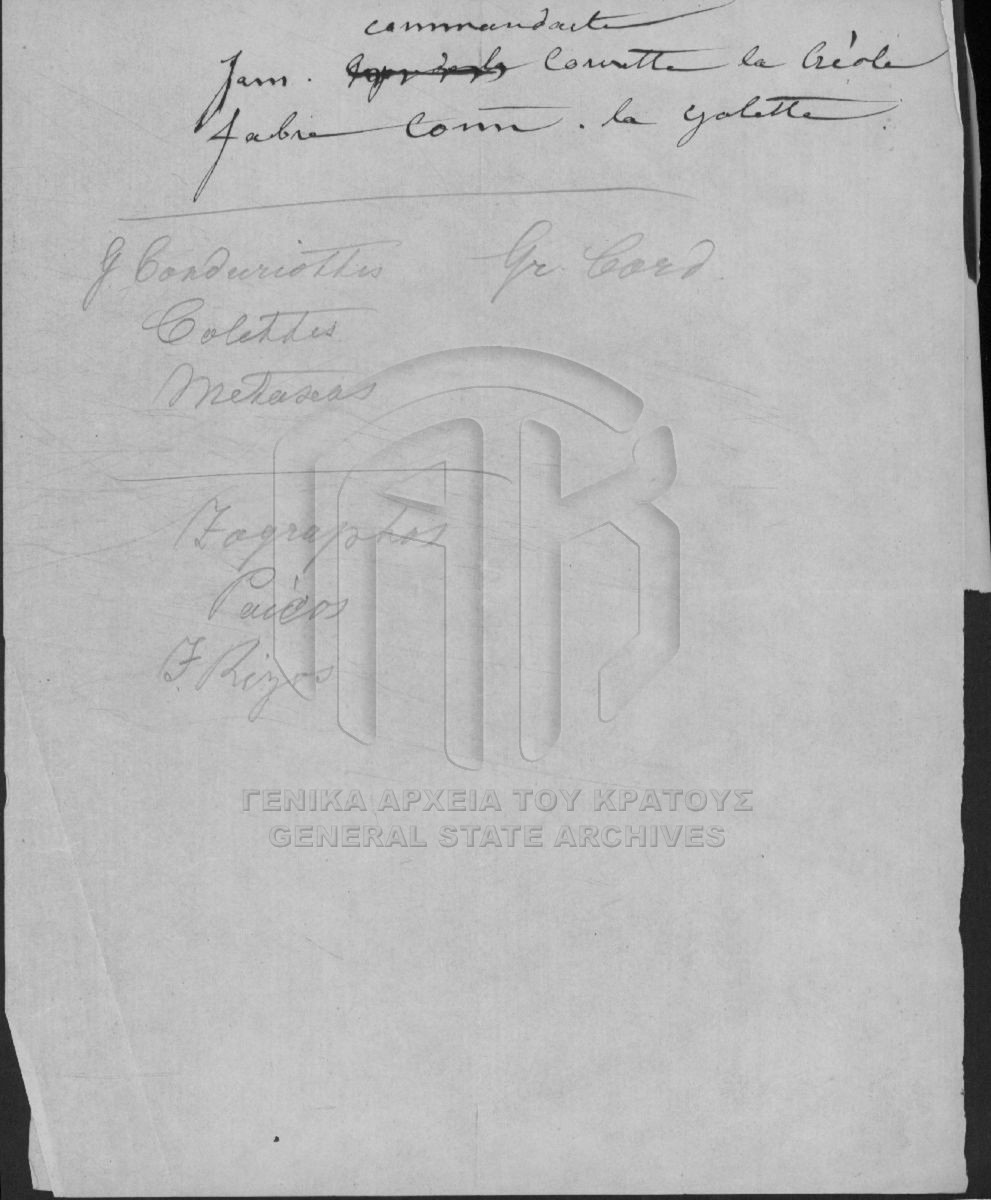 commandante
Jam. Corvette la Créole
Fabre Comm. la golette.
G Conduriottis Gr. Cord
Colettis
Metaxas
Zographos
Païcos
J Rizos
ΓΕΝΙΚΑ ΑΡΧΕΙΑ ΤΟΥ ΚΡΑΤΟΥΣ
GENERAL STATE ARCHIVES